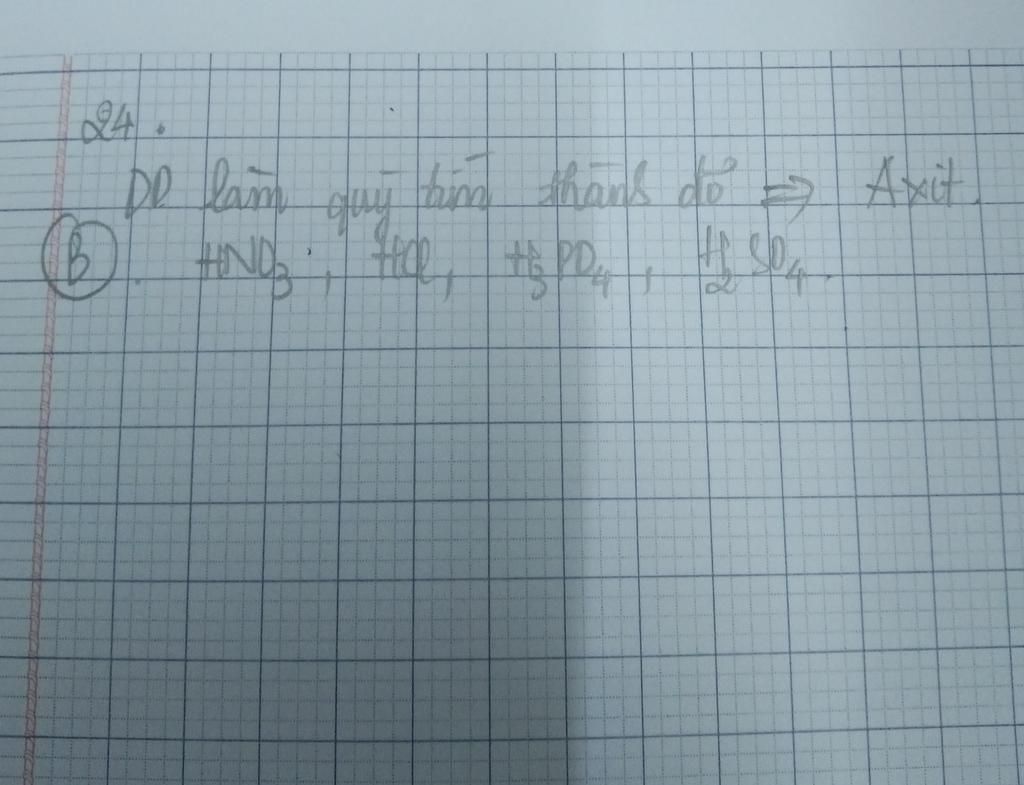 24.
DD làm quỳ tím thành đỏ ⇒ Axit.
B. HNO₃, HCl, H₃PO₄, H₂SO₄.